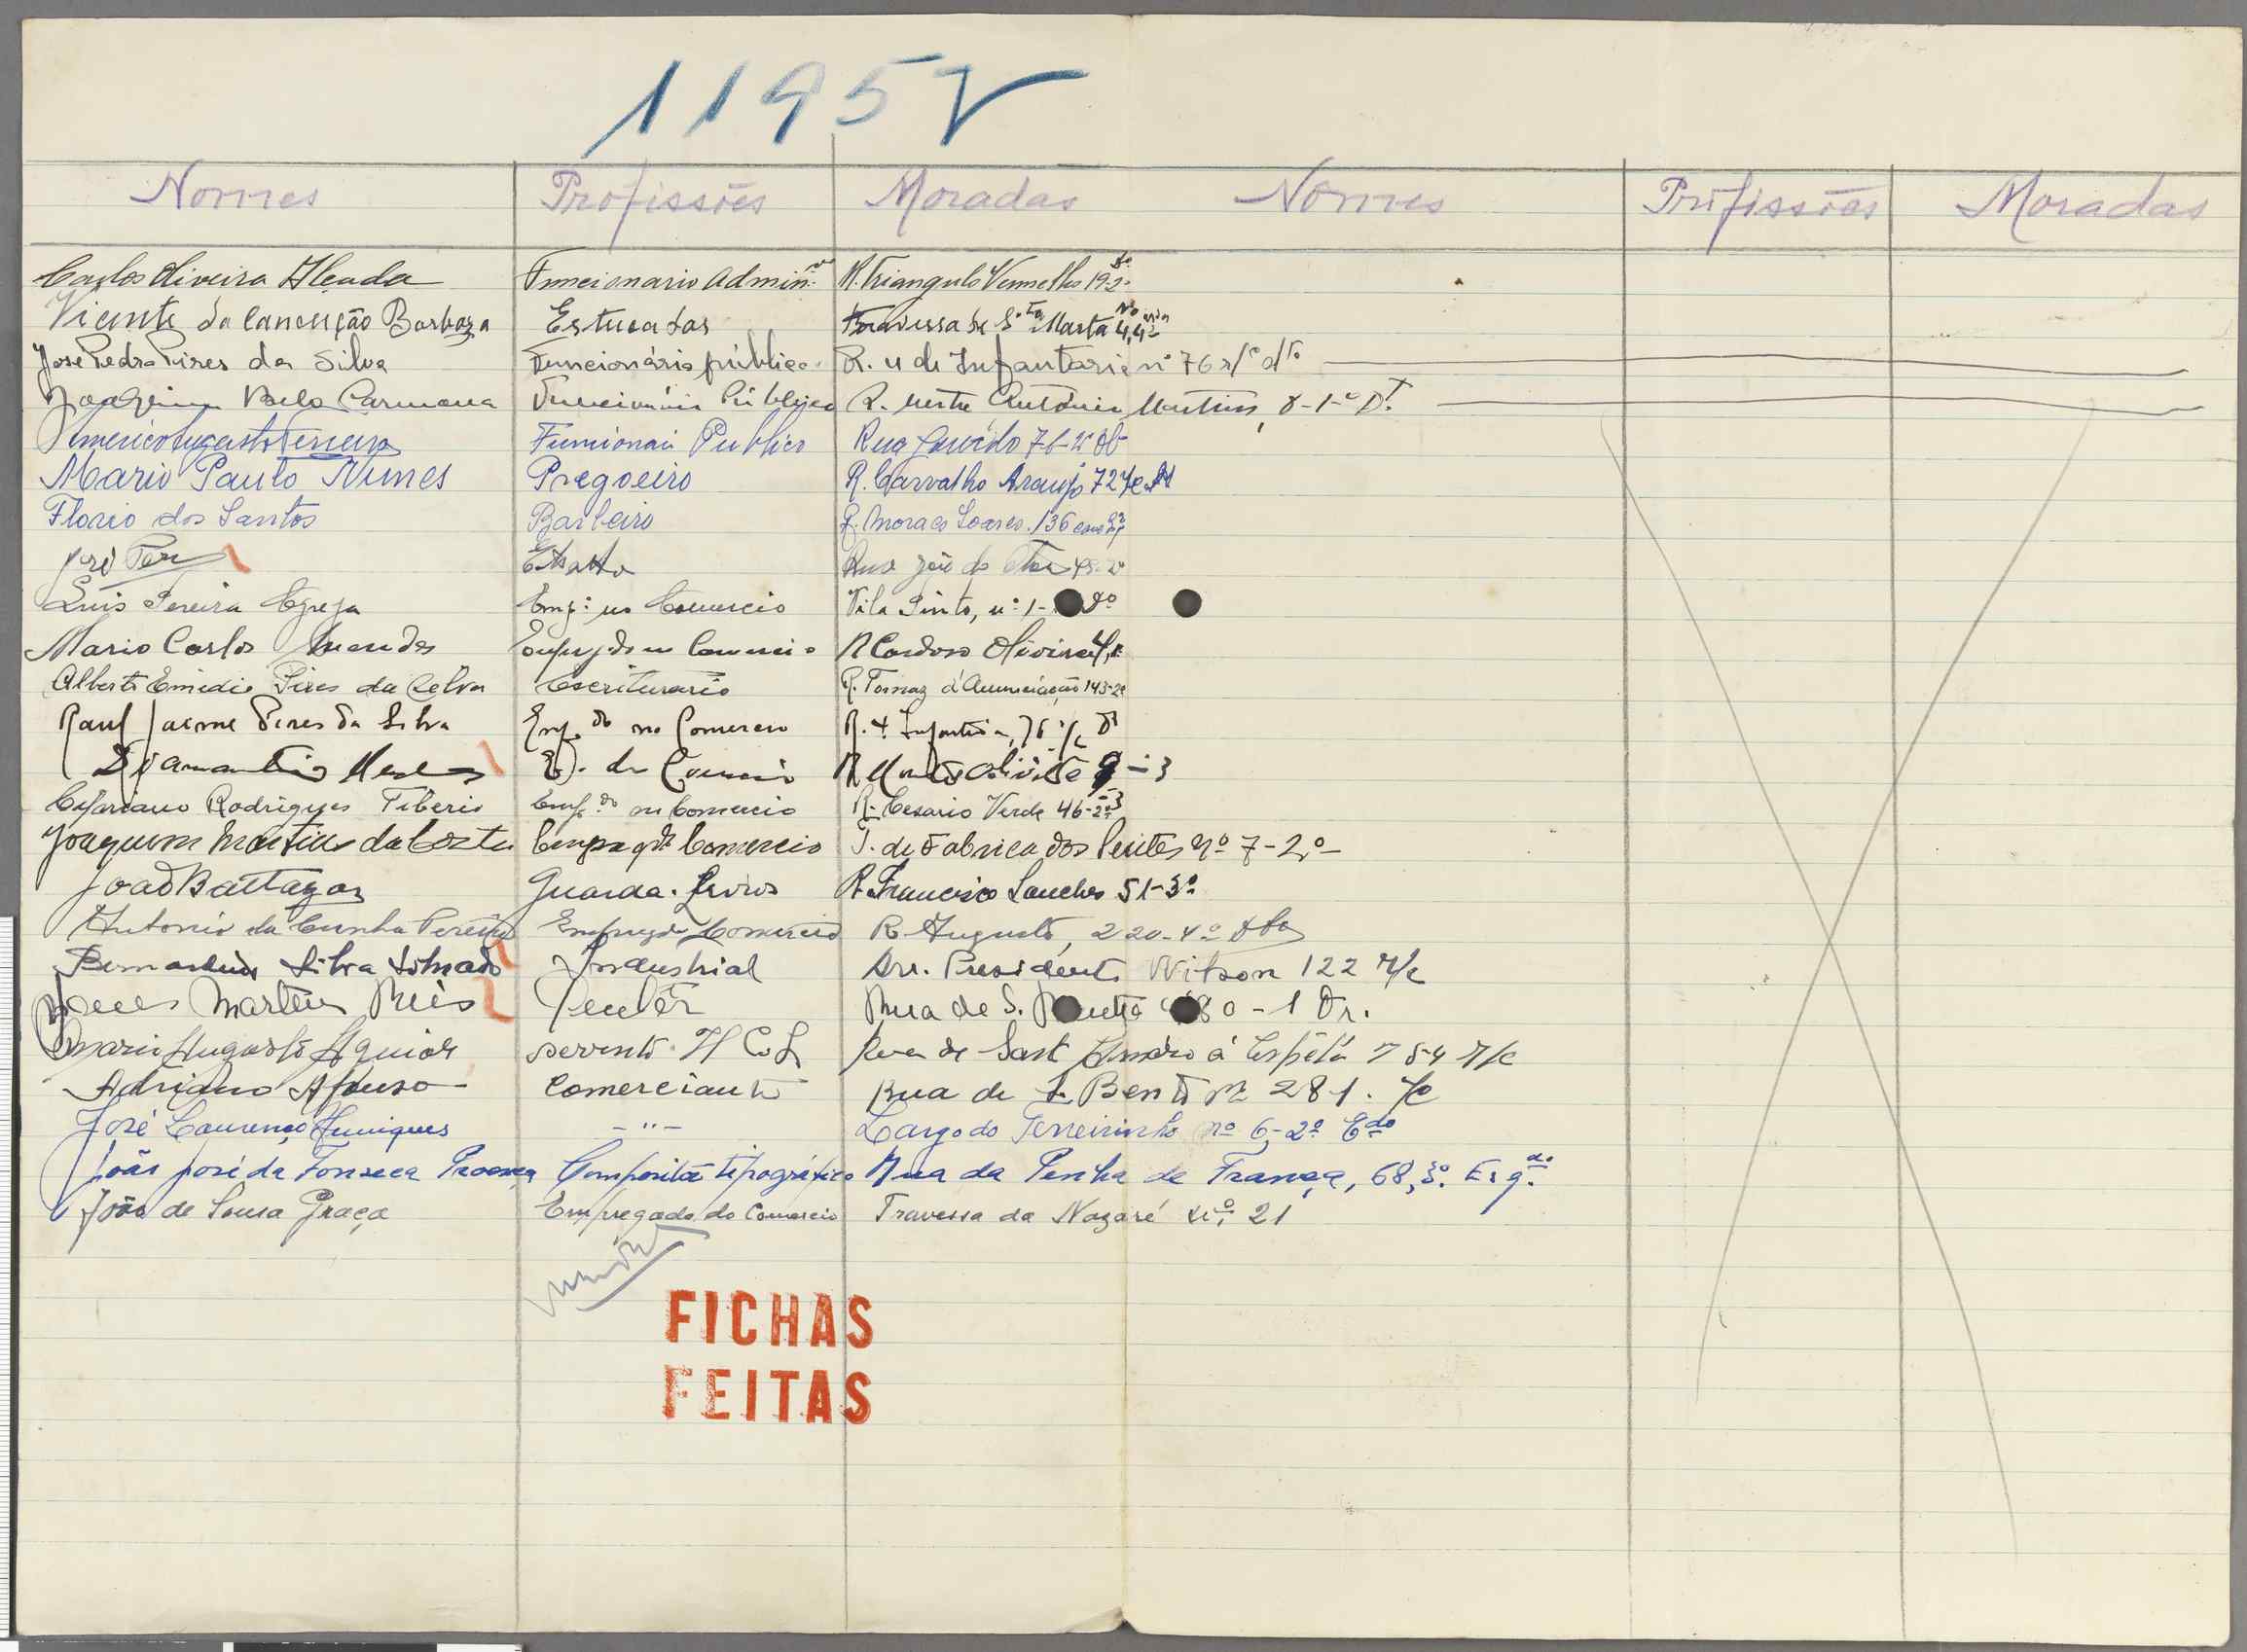 1195V
Nomes Profissões Moradas Nomes Profissões Moradas
Carlos Oliveira Funcionario Admin.vo R. Triangulo Vermelho 19-2º
Vicente da Conceição Barboza Estucador Travessa de S.ta Marta Nº 4,4
José Pedro Pires da Silva Funcionário público R. 4 de Infantaria nº 76 r/c dto
Joaquim Carmona Funcionário Público R. Mestre António Martins, 8-1º Dt.
Americo Funcionari Publico Rua
Mario Paulo Nunes Pregoeiro R. Carvalho Araujo 72 r/c
Florio dos Santos Barbeiro R. Moraes Soares. 136 cave
José Rua João do
Luis Pereira Emp: no Comercio Vila Pinto, nº 1- Dº
Mario Carlos Mendes Empregdo no Comercio R Cardoso Oliveira
Alberto Emidio Pires da Selva Escriturario R. Tomaz d'Anunciação 143-2º
Raul Jaime Pires da Silva Emp.do no Comercio R. 4 Infantaria, 76 r/c Dt
Diamantino E. do Comercio R Monte Olivete 9-3
Cipriano Rodrigues Tiberio Emp.do no Comercio R. Cesario Verde 46-2º
Joaquim Martins da Costa Empregdº Comercio T. da Fabrica dos Pentes nº 7-2º
João Battagoz Guarda-Livros R. Francisco Sanches 51-3º
Antonio da Cunha Pereira Empregdo Comercio R. Augusta, 220-4º Dto
Bernardino Silva Industrial Av. Presidente Wilson 122 r/c
Martins Pintor Rua de S. 80-1 Dr.
Mario Augusto Aguiar servente H C L Rua de Sant 7 54 r/c
Adriano Afonso Comerciante Rua de S. Bento nº 281. r/c
José Lourenço -"- Largo do Terreirinho nº 6-2º Edo
João José da Fonseca Proença Compositor tipográfico Rua da Penha de França, 68,3º. Esq.do
João de Sousa Graça Empregado do Comercio Travessa da Nazaré nº. 21
FICHAS
FEITAS